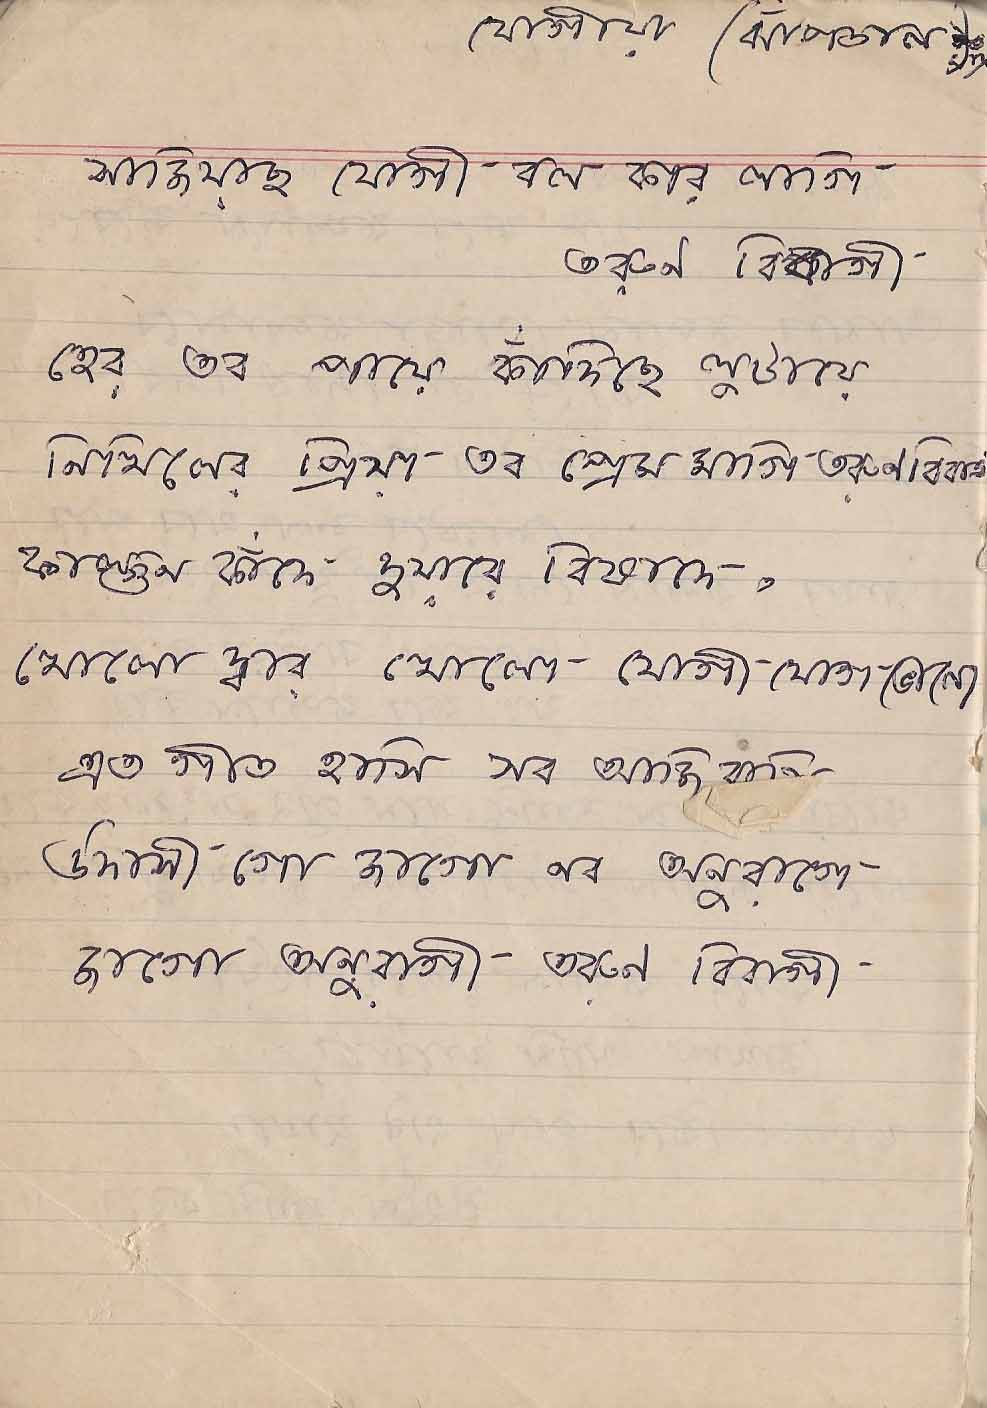 যোগীয়া (ঝাঁপতাল)
সাজিয়াছ যোগী বল কার লাগি
তরুণ বিবাগী
হের তব পায়ে কাঁদিছে লুটায়ে
নিখিলের প্রিয়া তব প্রেম মাগি তরুণ বিবাগী
ফাল্গুন কাঁদে দুয়ারে বিষাদে,
খোলো দ্বার খোলো যোগী যোগ ভোলো
এত গীত হাসি সব আজি বাসি
উদাসী গো জাগো নব অনুরাগে
জাগো অনুরাগী তরুণ বিবাগী